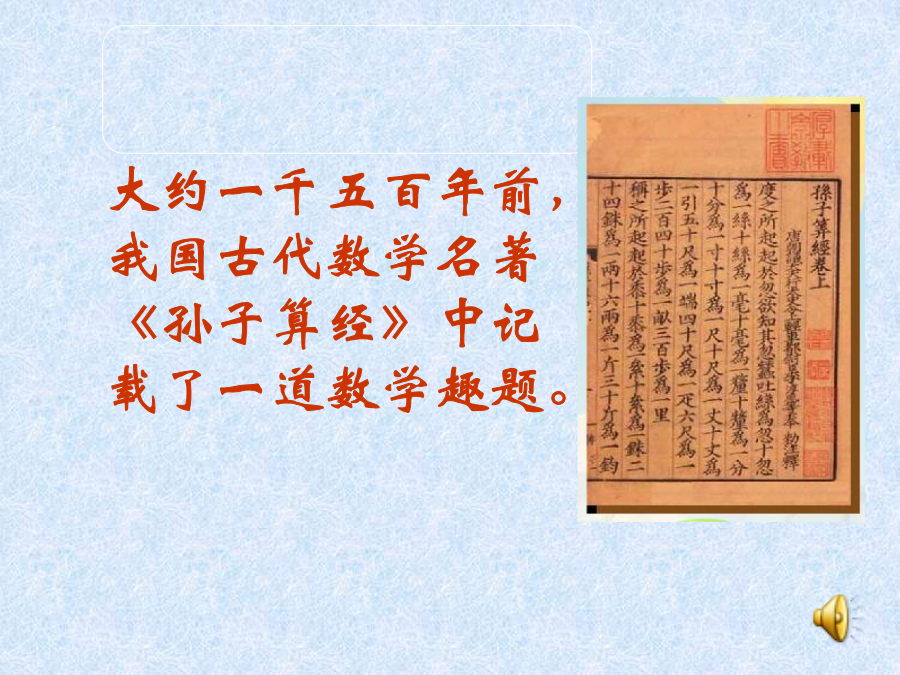 大约一千五百年前，
我国古代数学名著
《孙子算经》中记
载了一道数学趣题。
孫子算經卷上
度之所起起於忽欲知其忽蠶吐絲爲忽十忽
爲一絲十絲爲一毫十毫爲一釐十釐爲一分
十分爲一寸十寸爲一尺十尺爲一丈十丈爲
一引五十尺爲一端四十尺爲一疋六尺爲一
步二百四十步爲一畝三百步爲一里
稱之所起起於黍十黍爲一絫十絫爲一銖二
十四銖爲一兩十六兩爲一斤三十斤爲一鈞